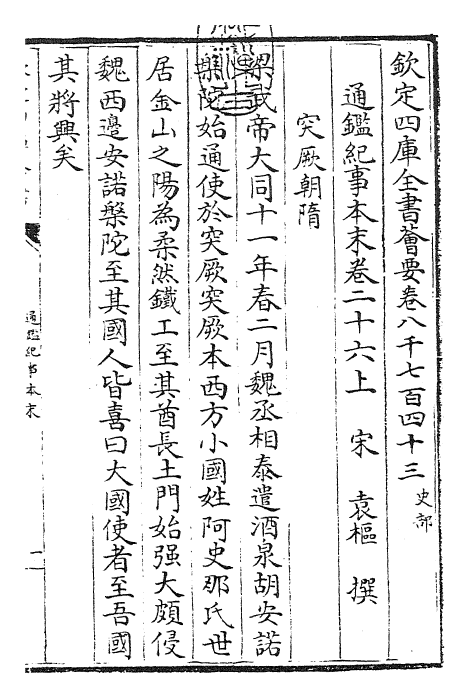 欽定四庫全書薈要卷八千七百四十三 史部
通鑑紀事本末卷二十六上 宋 袁樞 撰
突厥朝隋
梁武帝大同十一年春二月魏丞相泰遣酒泉胡安諾
槃陀始通使於突厥突厥本西方小國姓阿史那氏世
居金山之陽為柔然鐵工至其酋長土門始强大頗侵
魏西邊安諾槃陀至其國人皆喜曰大國使者至吾國
其將興矣
通鑑紀事本末